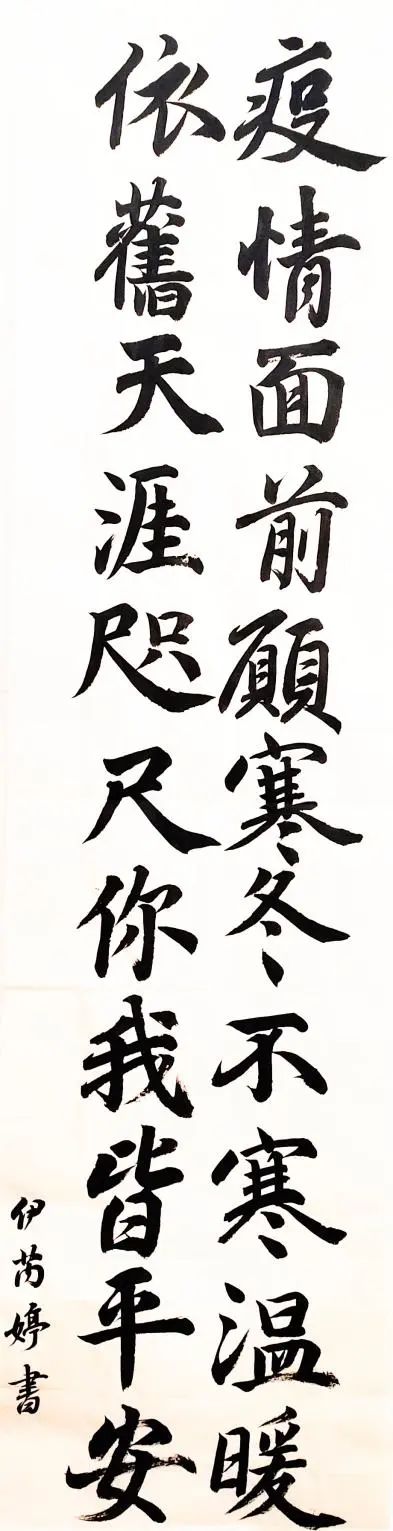 疫情面前願寒冬不寒温暖
依舊天涯咫尺你我皆平安
伊芮婷書